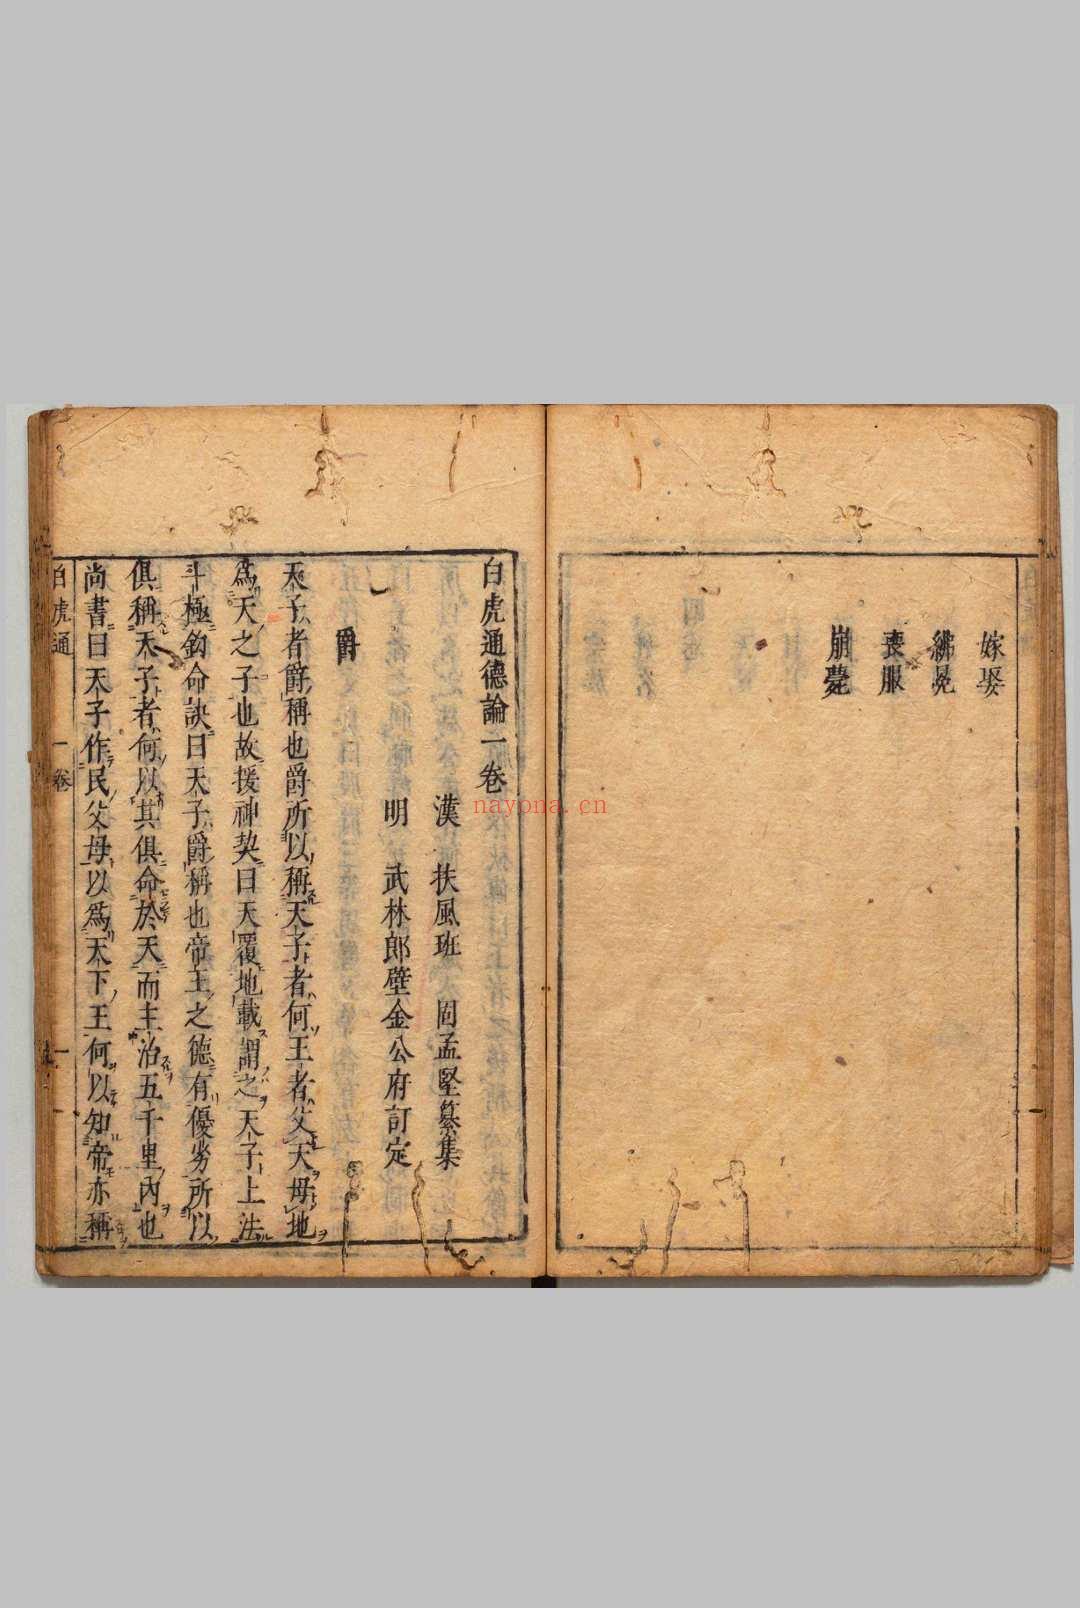 嫁娶
紼冕
喪服
崩薨
白虎通德論一卷
漢 扶風班 固孟堅纂集
明 武林郎壁金公府訂定
爵
天子者爵稱也爵所以稱天子者何王者父天母地
爲天之子也故援神契曰天覆地載謂之天子上法
斗極鈎命訣曰天子爵稱也帝王之德有優劣所以
俱稱天子者何以其俱命於天而主治五千里內也
尚書曰天子作民父母以爲天下王何以知帝亦稱
白虎通 一卷 一
nayona.cn